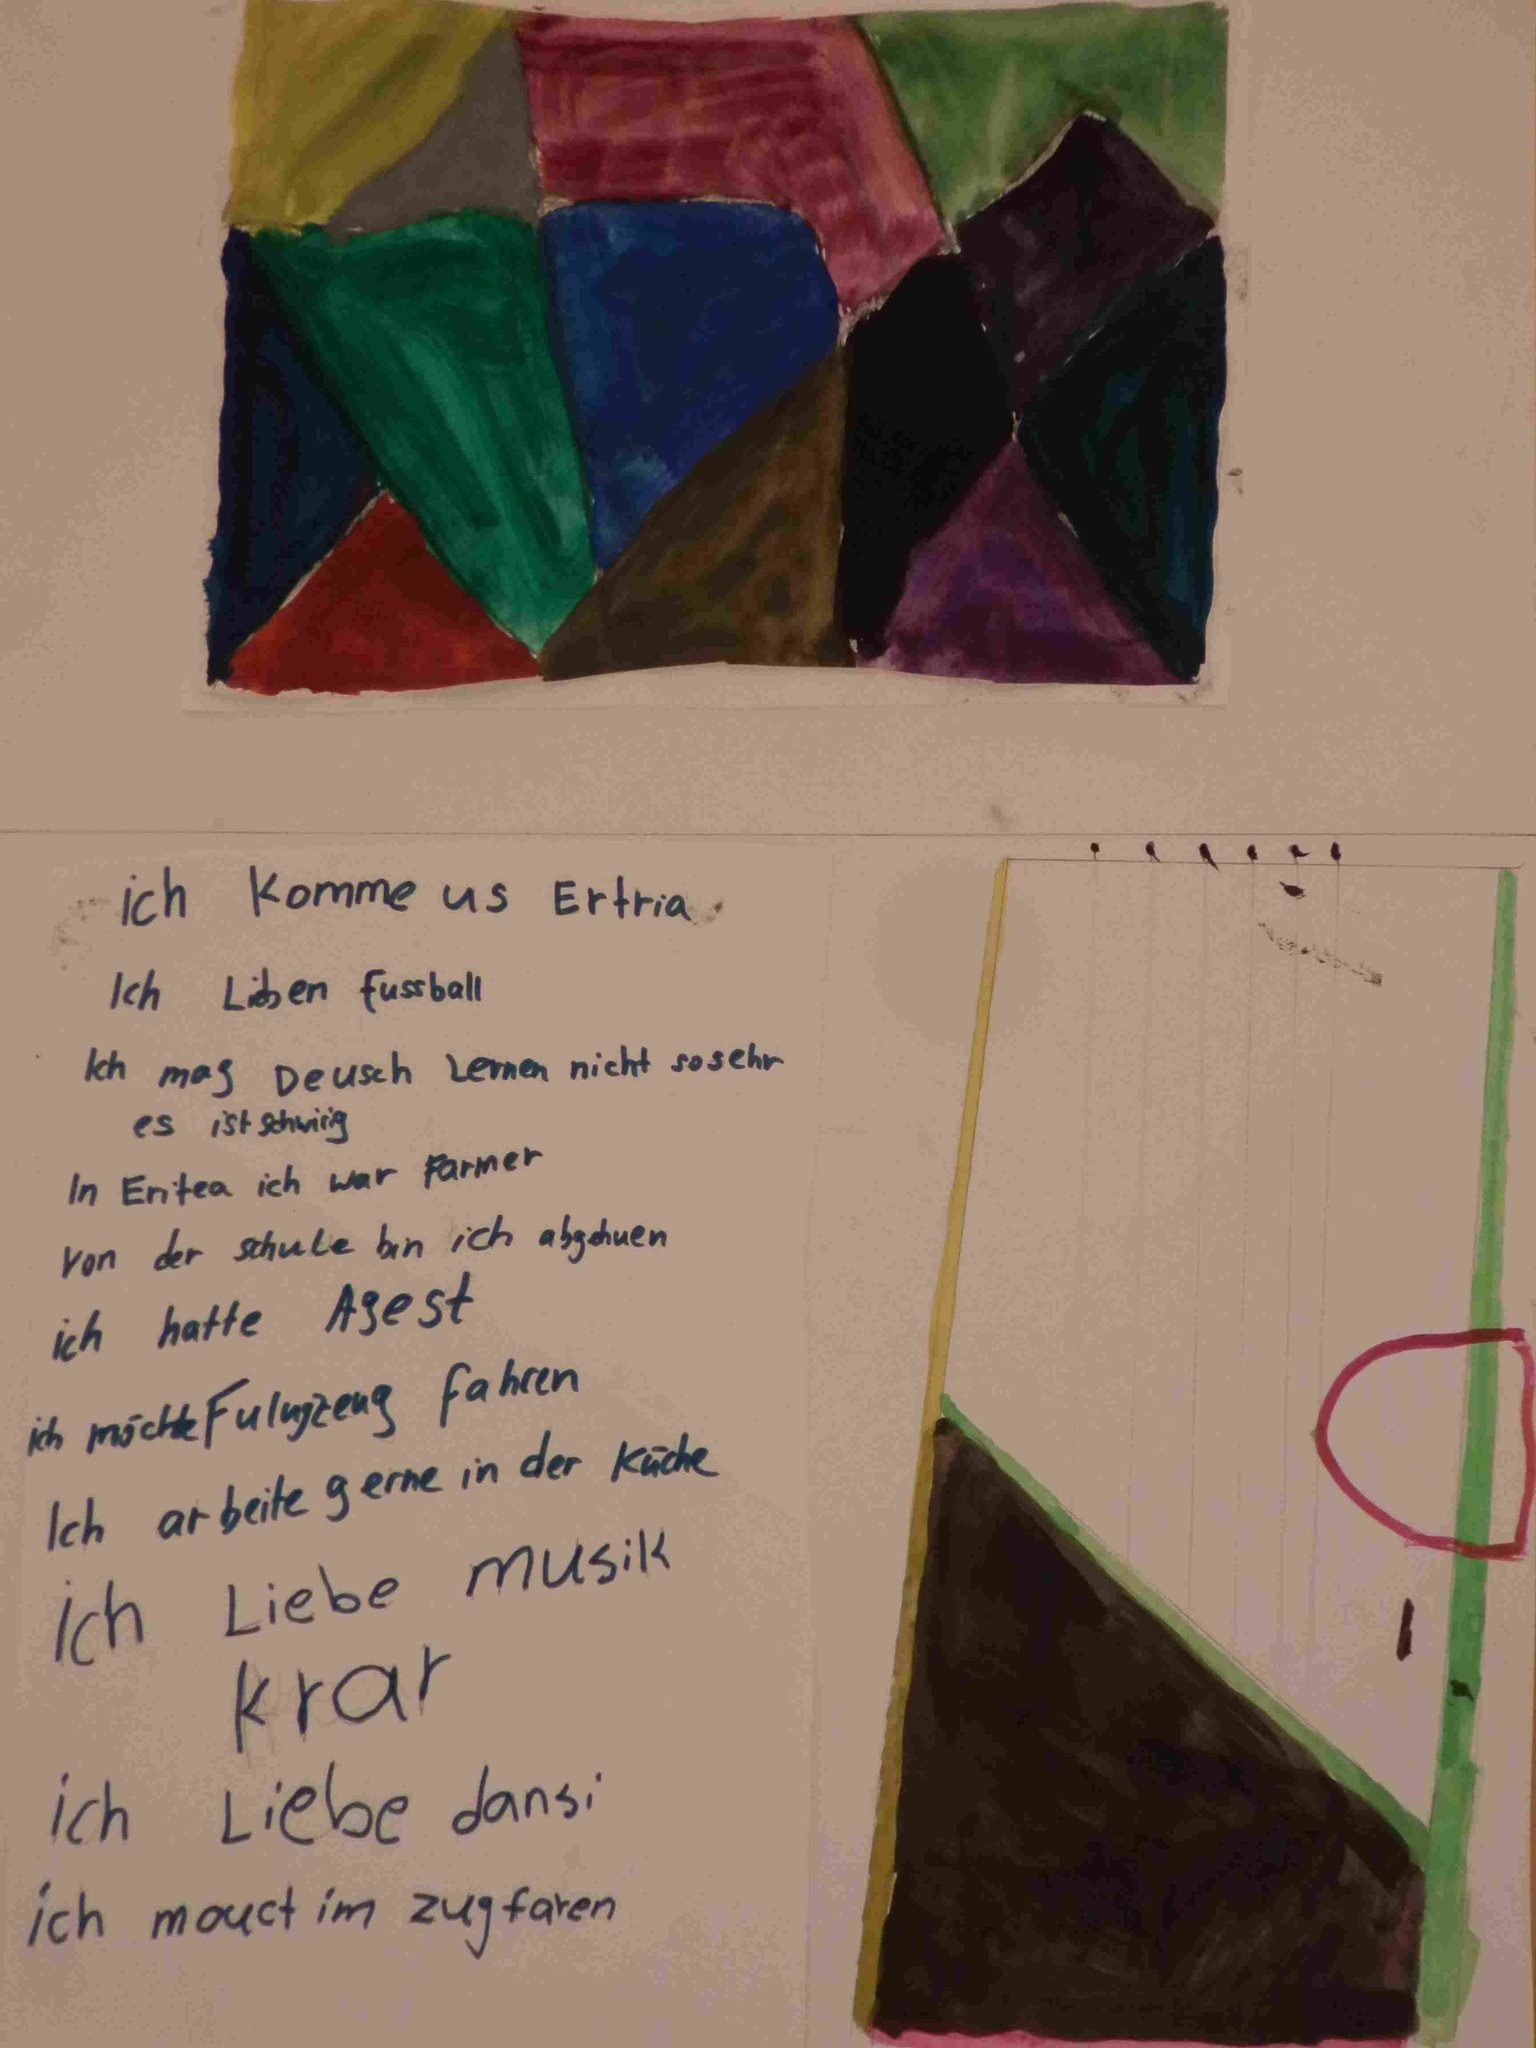 ich Komme us Ertria
Ich Liben fussball
Ich mag Deusch Lernen nicht so sehr
es ist schwirig
In Eritea ich war Farmer
Von der schule bin ich abgehuen
ich hatte Agest
ich möchte Fulugzeug fahren
Ich arbeite gerne in der Küche
ich Liebe musik
krar
ich Liebe dansi
ich mouct im zug faren